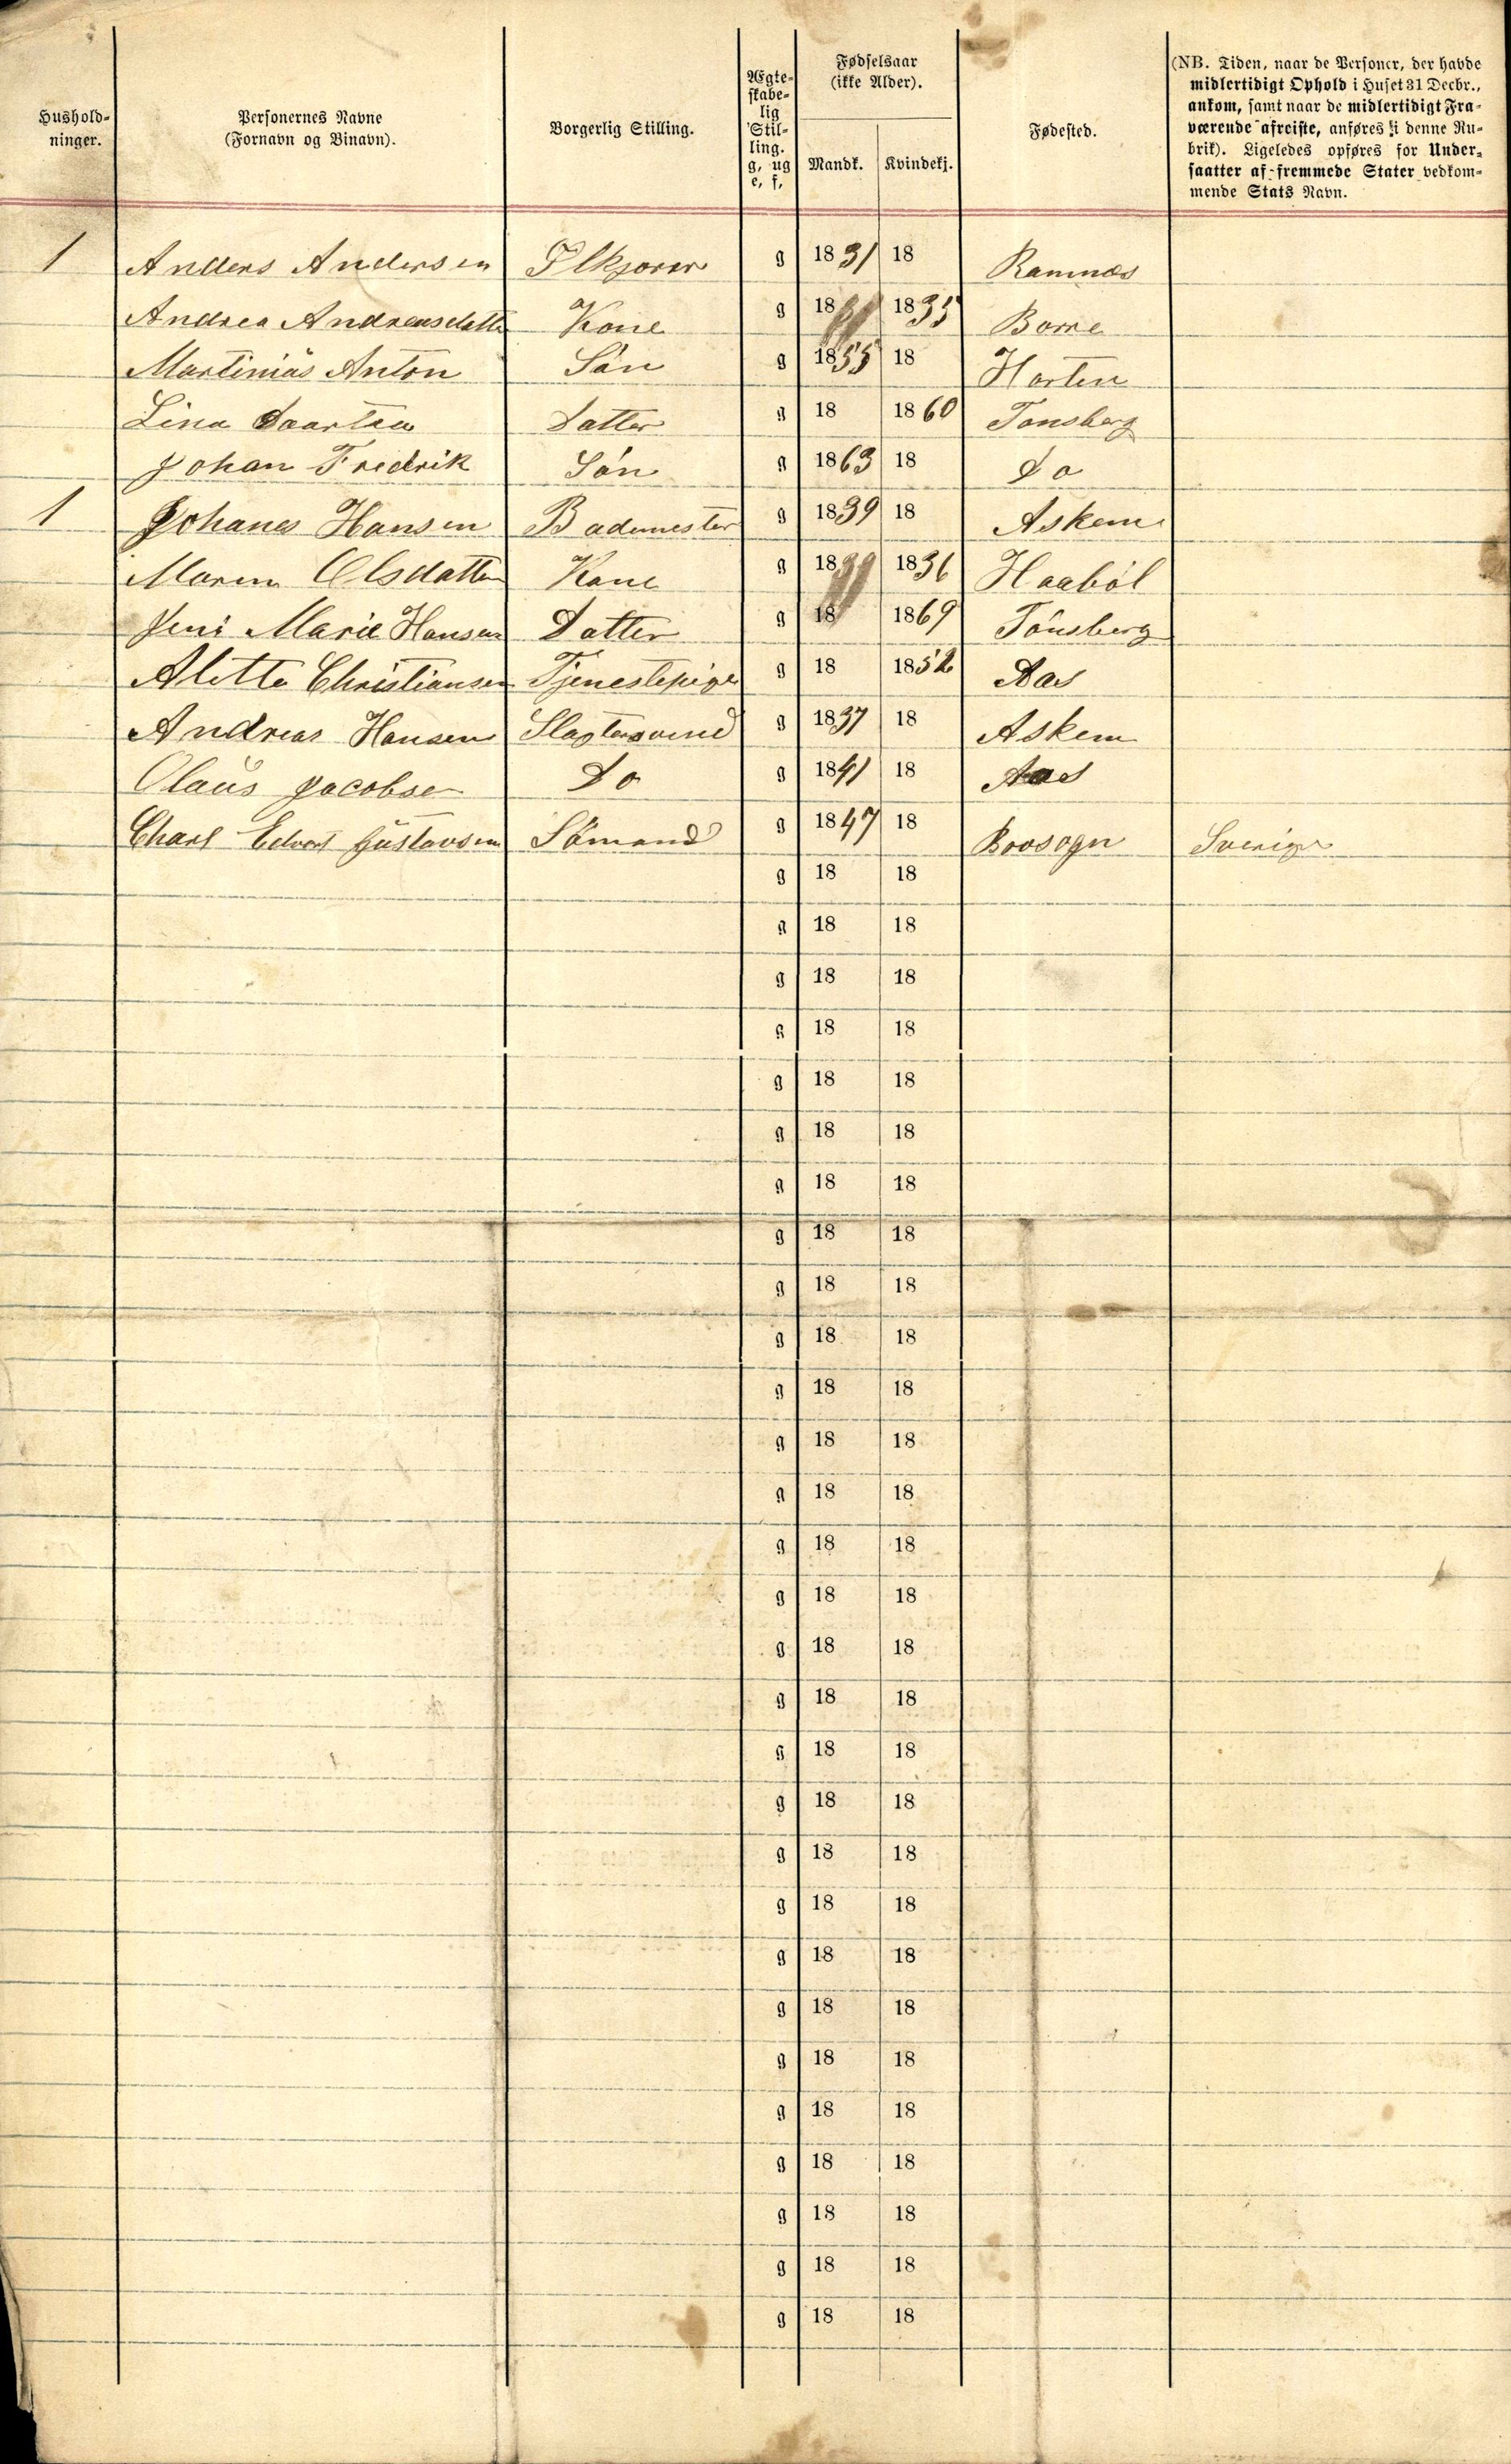 Hushold-
ninger.
Personernes Navne
(Fornavn og Binavn).
Borgerlig Stilling.
Ægte-
skabe-
lig
Stil-
ling.
g, ug
e, f,
Fødselsaar
(ikke Alder).
Mandk. Kvindekj.
Fødested.
(NB. Tiden, naar de Personer, der havde
midlertidigt Ophold i Huset 31 Decbr.,
ankom, samt naar de midlertidigt Fra-
værende afreiste, anføres i denne Ru-
brik). Ligeledes opføres for Under-
saatter af fremmede Stater vedkom-
mende Stats Navn.
1 Anders Andersen g 1831 18 Ramnæs
Andrea Andreasdatte Kone g 18 1835 Borre
Martiniüs Anton Sön g 1855 18 Horten
Lina Datter g 18 1860 Tonsberg
Johan Fredrik Sön g 1863 18 Do
1 Johanes Hansen Bademester g 1839 18 Askem
Maren Olsdatter Kone g 18 1836 Haaböl
Jeni Marie Hansen Datter g 18 1869 Tönsberg
Alette Christiansen Tjenestepige g 18 1852 Aas
Andreas Hansen g 1837 18 Askem
Olaüs Jacobsen Do g 1841 18 Aas
Charl Edvart Güstavsen Sömand g 1847 18 Sverige
g 18 18
g 18 18
g 18 18
g 18 18
g 18 18
g 18 18
g 18 18
g 18 18
g 18 18
g 18 18
g 18 18
g 18 18
g 18 18
g 18 18
g 18 18
g 18 18
g 18 18
g 18 18
g 18 18
g 18 18
g 18 18
g 18 18
g 18 18
g 18 18
g 18 18
g 18 18
g 18 18
g 18 18
g 18 18